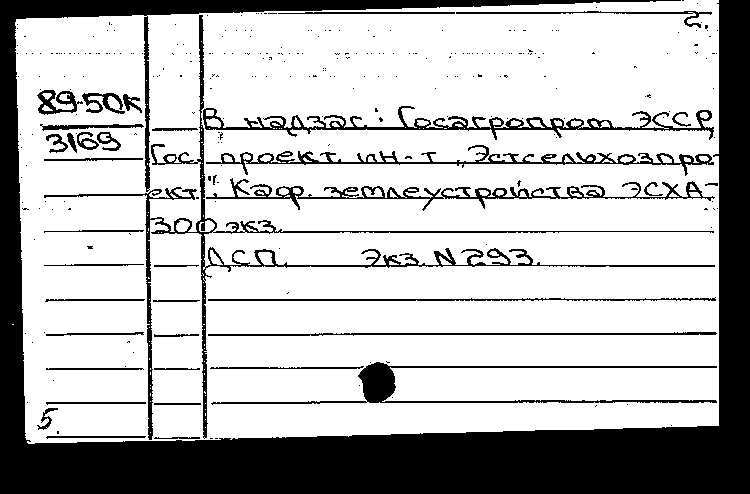 2.
89-50к
3169
В надзаг: Госагропром ЭССР,
Гос. проект. ин-т „Эстсельхозпро-
ект"; Каф. землеустройства ЭСХА-
300 экз.
ДСП. Экз. N 293.
5.